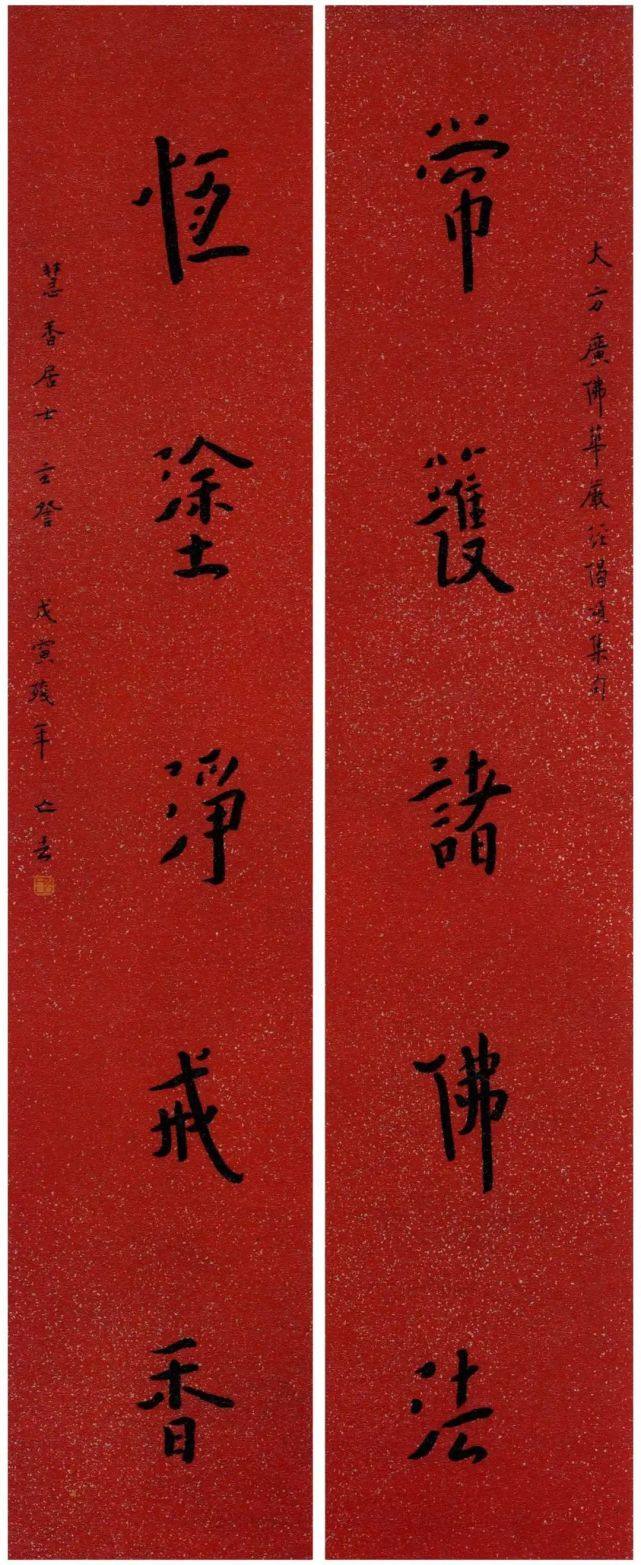 大方廣佛華嚴經偈頌集句
常護諸佛法
恆塗淨戒香
慧香居士主詧 戊寅殘年 亾言